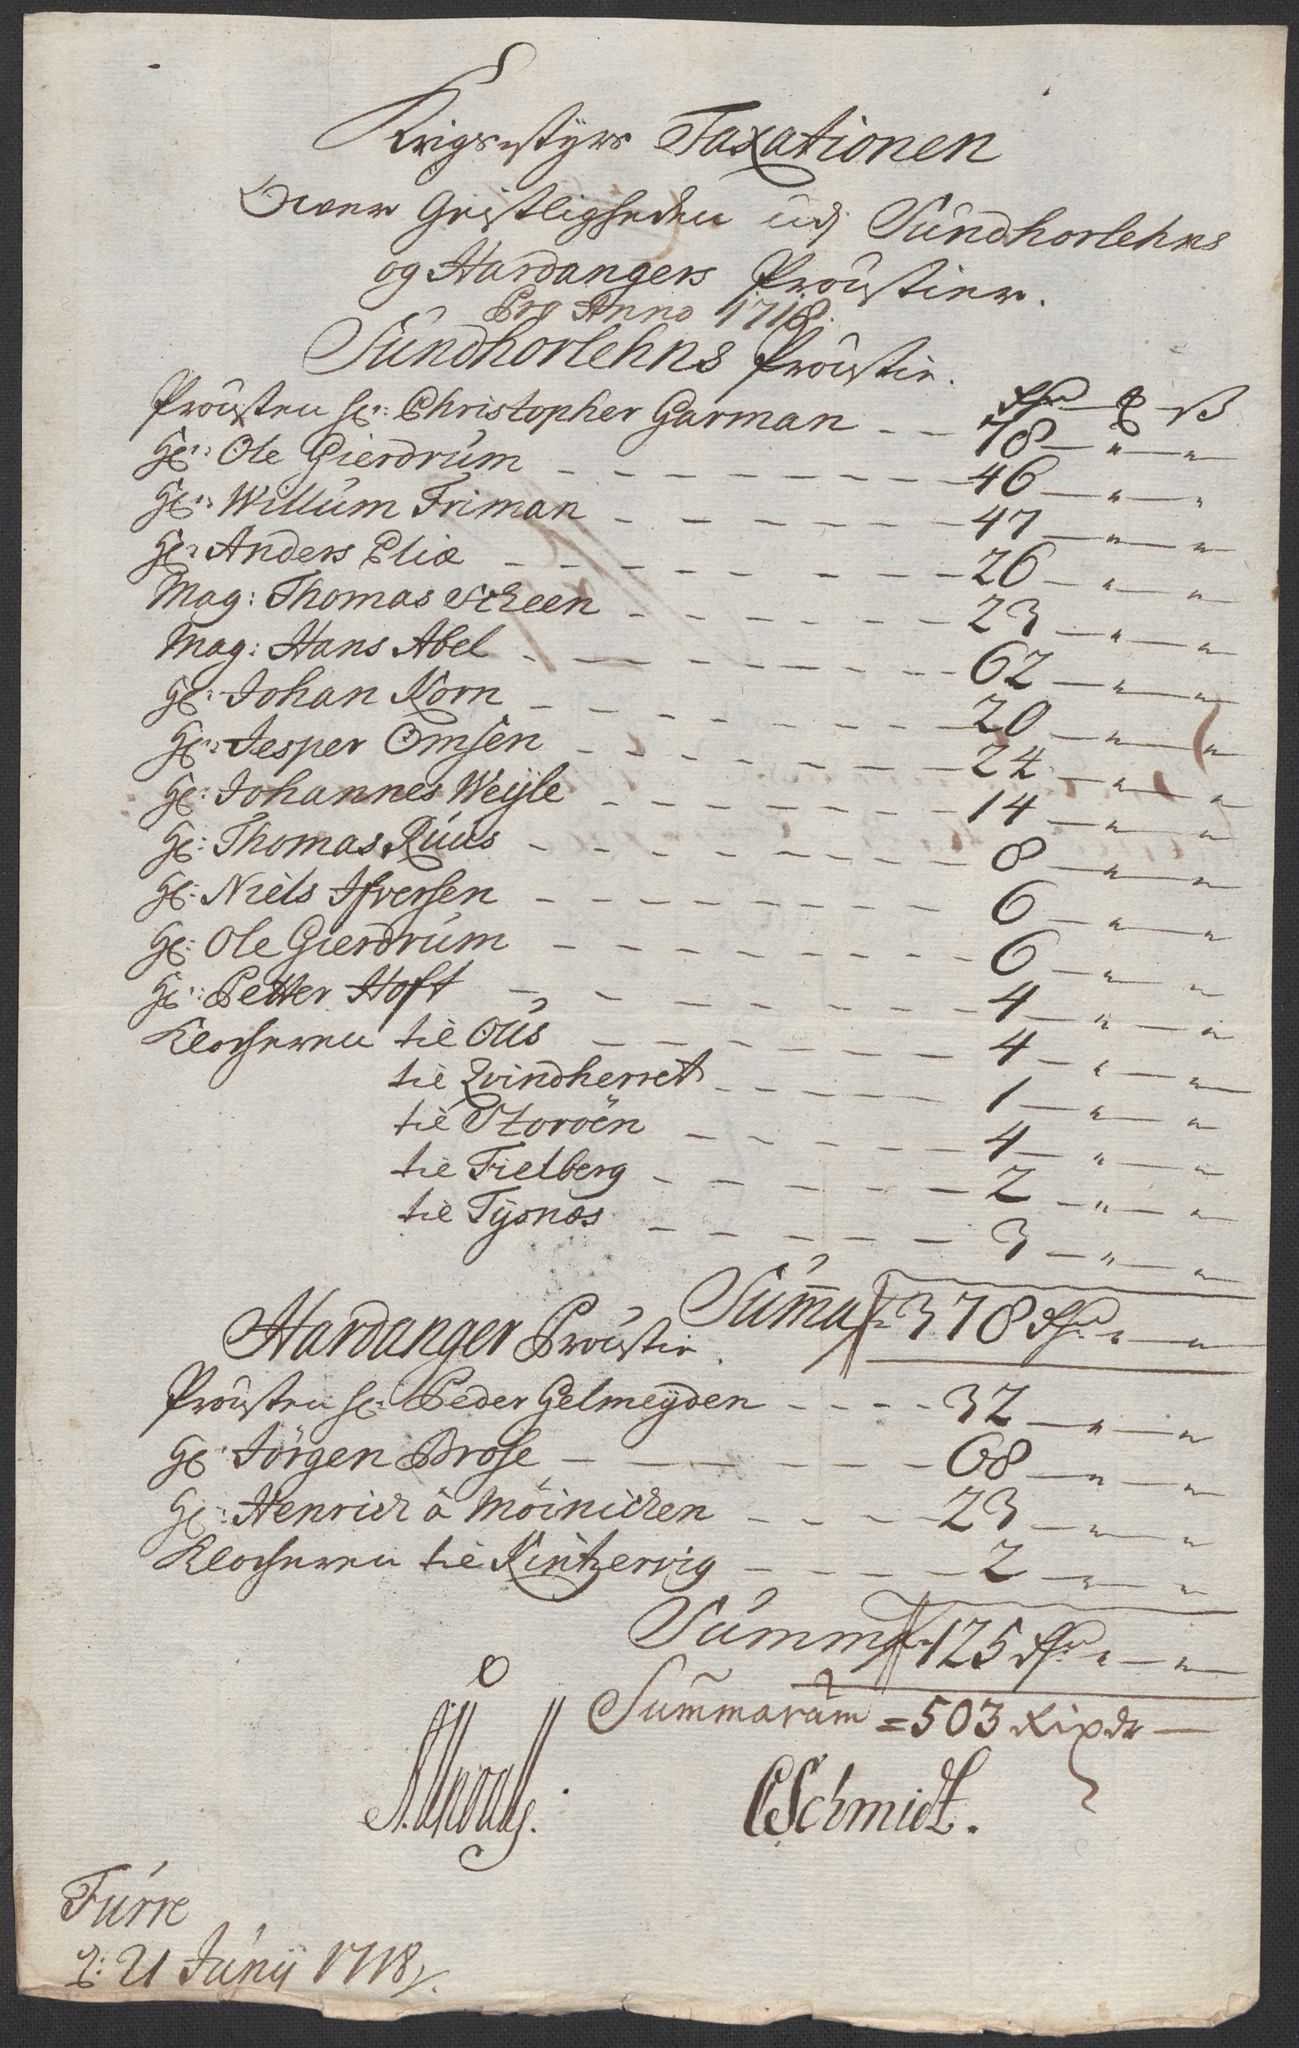 Krigsstyrs Taxationen
Over Geistligheden udj Sundhorlehns
og Hardangers Proustier.
Pro Anno 1718.
Sundhorlehns Proustie.
Rdr m ß
Prousten hr: Christopher Garman - - 78 - " - "
Hr: Ole Gierdrum - - - 46 - " - "
Hr: Willum Friman - - - 47 - " - "
Hr: Anders Eliæ - - - 26 - " - "
Mag: Thomas Scheen - - - 23 - " - "
Mag: Hans Abel - - - 62 - " - "
Hr: Johan Korn - - - 20 - " - "
Hr: Jesper Omsen - - - 24 - " - "
Hr: Johannes Weyle - - - 14 - " - "
Hr: Thomas Ruus - - - 8 - " - "
Hr: Niels Ifversen - - - 6 - " - "
Hr: Ole Gierdrum - - - 6 - " - "
Hr: Petter Hoft - - - 4 - " - "
Klocheren til Ous - - - 4 - " - "
til Qvindherret - - - 1 - " - "
til Storöen - - - 4 - " - "
til Fielberg - - - 2 - " - "
til Tysnæs - - - 3 - " - "
Summa 378 Rdr " - "
Hardanger Proustie.
Prousten hr: Peder Gelmeyden - - - 32 - " - "
Hr: Jörgen Brose - - - 68 - " - "
Hr: Henrich à Möinichen - - - 23 - " - "
Klocheren til Kintzervig - - - 2 - " - "
Summa 125 Rdr " - "
Summarum = 503 Rixdr -
CSchmidt.
Furre
d: 21 Junij 1718